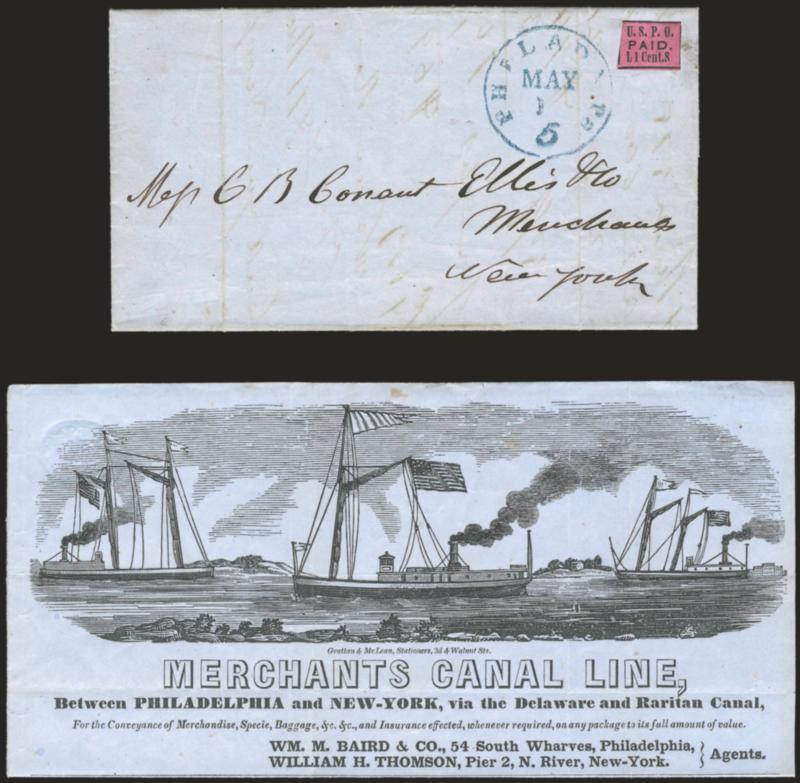 U.S.P.O.
PAID.
L1 Cent.S
PHILADA. Pa
MAY
1
5
Mess C B Conant Ellis & Co
Merchants
New York
Gratton & McLean, Stationers, 3d & Walnut Sts.
MERCHANTS CANAL LINE,
Between PHILADELPHIA and NEW-YORK, via the Delaware and Raritan Canal,
For the Conveyance of Merchandise, Specie, Baggage, &c. &c., and Insurance effected, whenever required, on any package to its full amount of value.
WM. M. BAIRD & CO., 54 South Wharves, Philadelphia,
WILLIAM H. THOMSON, Pier 2, N. River, New-York.
Agents.